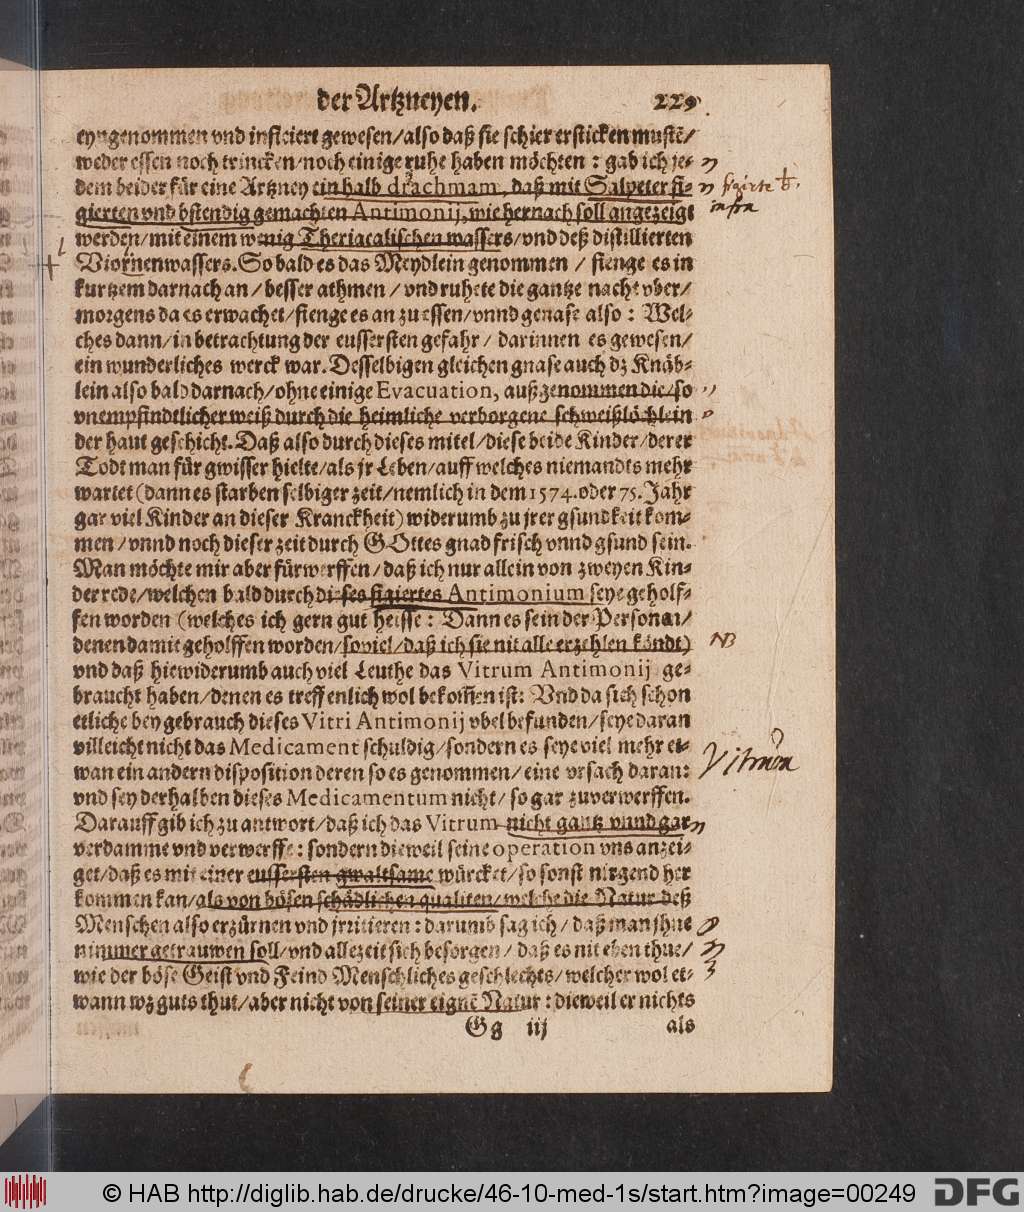 der Artzneyen. 229
eyngenommen vnd inficiert gewesen/also daß sie schier ersticken mustẽ/
weder essen noch trincken/noch einige ruhe haben möchten : gab ich je-
dem beider für eine Artzney ein halb drachmam, daß mit Salpeter fi-
gierten vnd bstendig gemachten Antimonij, wie hernach soll angezeigt
werden/mit einem wenig Theriacalischen wassers/vnd deß distillierten
Viornenwassers. So bald es das Meydlein genommen / fienge es in
kurtzem darnach an / besser athmen / vnd ruhete die gantze nacht vber/
morgens da es erwachet/fienge es an zu essen/vnnd genase also : Wel-
ches dann/in betrachtung der eussersten gefahr / darinnen es gewesen/
ein wunderliches werck war. Desselbigen gleichen gnase auch dz Knäb-
lein also bald darnach/ohne einige Evacuation, außgenommen die/so
vnempfindtlicher weiß durch die heimliche verborgene schweißlöchlein
der haut geschicht. Daß also durch dieses mitel/diese beide Kinder/derer
Todt man für gwisser hielte/als jr Leben/auff welches niemandts mehr
wartet (dann es starben selbiger zeit/nemlich in dem 1574. oder 75. Jahr
gar viel Kinder an dieser Kranckheit) widerumb zu jrer gsundkeit kom-
men / vnnd noch dieser zeit durch GOttes gnad frisch vnnd gsund sein.
Man möchte mir aber fürwerffen/daß ich nur allein von zweyen Kin-
der rede/welchen bald durch dieses figiertes Antimonium seye geholf-
fen worden (welches ich gern gut heisse : Dann es sein der Personen/
denen damit geholffen worden/soviel/daß ich sie nit alle erzehlen köndt)
vnd daß hiewiderumb auch viel Leuthe das Vitrum Antimonij ge-
braucht haben/denen es treffenlich wol bekom̃en ist: Vnd da sich schon
etliche bey gebrauch dieses Vitri Antimonij vbel befunden/seye daran
villeicht nicht das Medicament schuldig/sondern es seye viel mehr et-
wan ein andern disposition deren so es genommen/eine vrsach daran:
vnd sey derhalben dieses Medicamentum nicht/ so gar zuverwerffen.
Darauff gib ich zu antwort/daß ich das Vitrum nicht gantz vnnd gar
verdamme vnd verwerffe : sondern dieweil seine operation vns anzei-
get/daß es mit einer eussersten gwaltsame würcket/so sonst nirgend her
kommen kan/als von bösen schädlichen qualiten/welche die Natur deß
Menschen also erzürnen vnd jrritieren : darumb sag ich / daß man jhne
nimmer getrauwen soll/vnd allezeit sich besorgen / daß es nit eben thue/
wie der böse Geist vnd Feind Menschliches geschlechts/welcher wol et-
wann wz guts thut/aber nicht von seiner eignẽ Natur : dieweil er nichts
Gg iij als
figirte ♁.
infra
NB
Vitrum
© HAB http://diglib.hab.de/drucke/46-10-med-1s/start.htm?image=00249 DFG